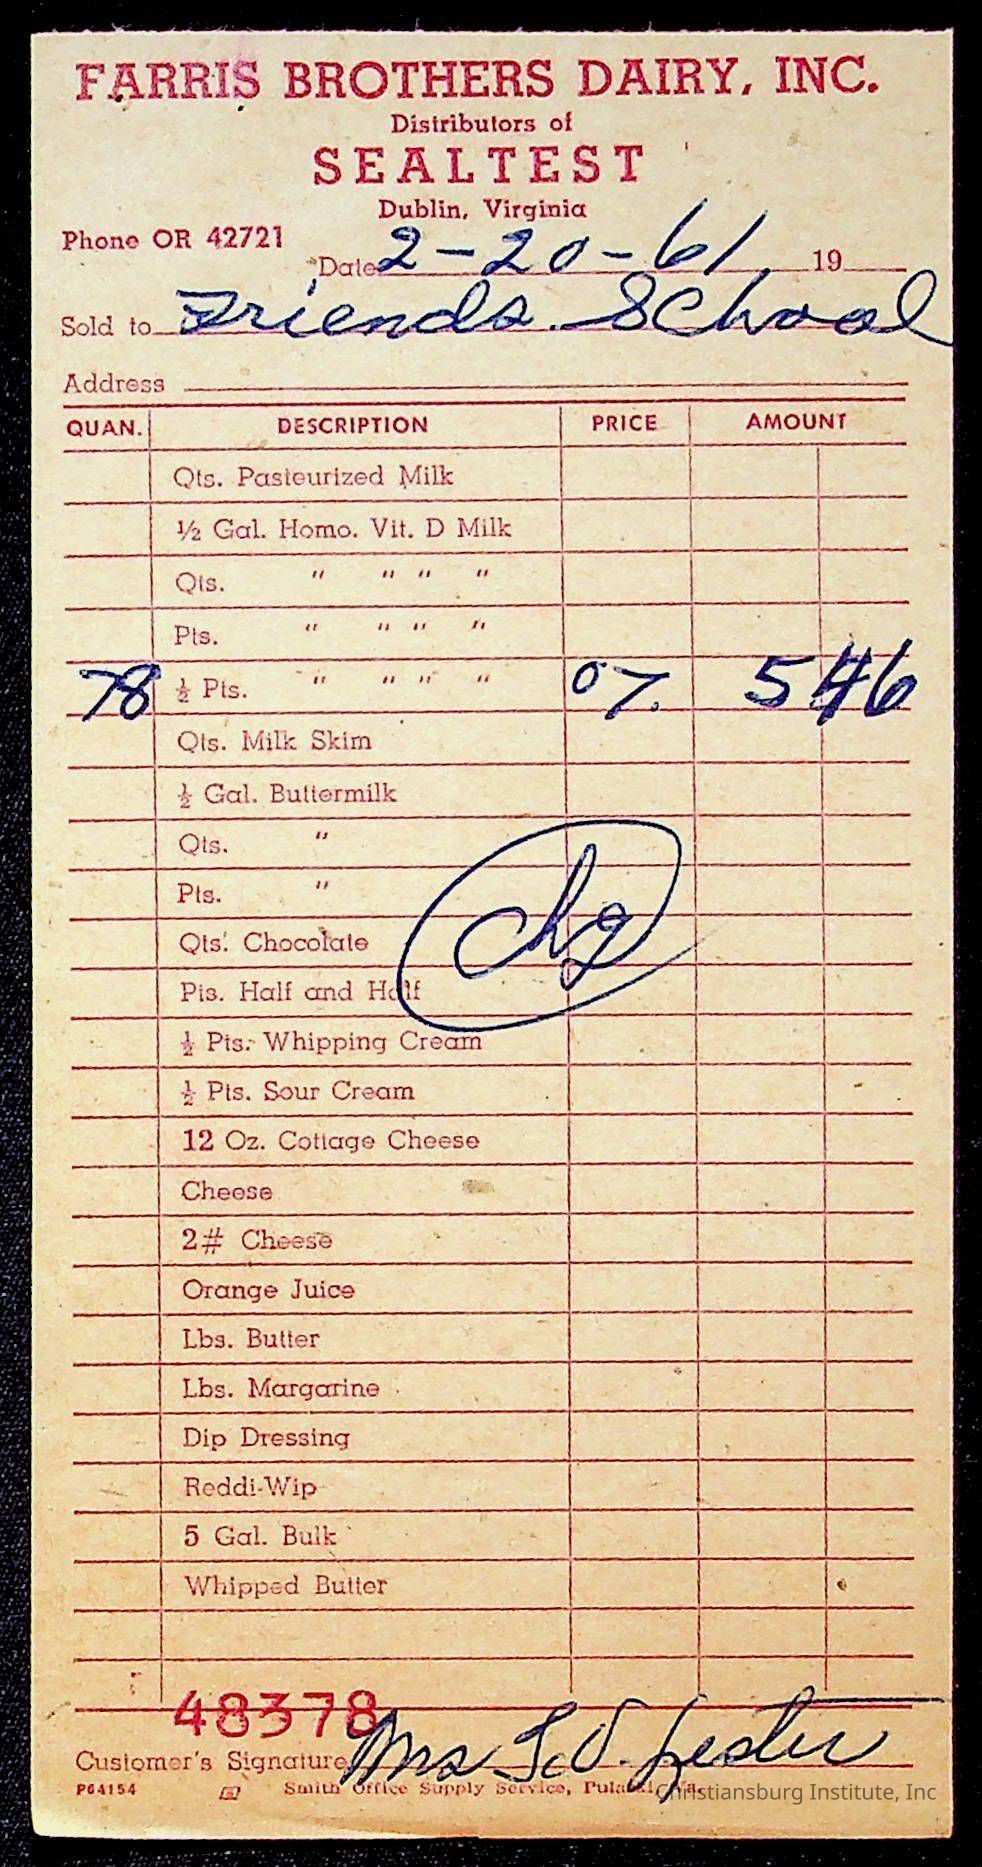 FARRIS BROTHERS DAIRY, INC.
Distributors of
SEALTEST
Dublin, Virginia
Phone OR 42721
Date 2-20-61 19
Sold to Friends School
Address
QUAN. DESCRIPTION PRICE AMOUNT
Qts. Pasteurized Milk
½ Gal. Homo. Vit. D Milk
Qts. " " " "
Pts. " " " "
78 ½ Pts. " " " " 07. 5 46
Qts. Milk Skim
½ Gal. Buttermilk
Qts. "
Pts. "
chg
Qts. Chocolate
Pts. Half and Half
½ Pts. Whipping Cream
½ Pts. Sour Cream
12 Oz. Cottage Cheese
Cheese
2# Cheese
Orange Juice
Lbs. Butter
Lbs. Margarine
Dip Dressing
Reddi-Wip
5 Gal. Bulk
Whipped Butter
48378
Customer's Signature Mrs. Lester
P64154 Smith Office Supply Service,
Christiansburg Institute, Inc